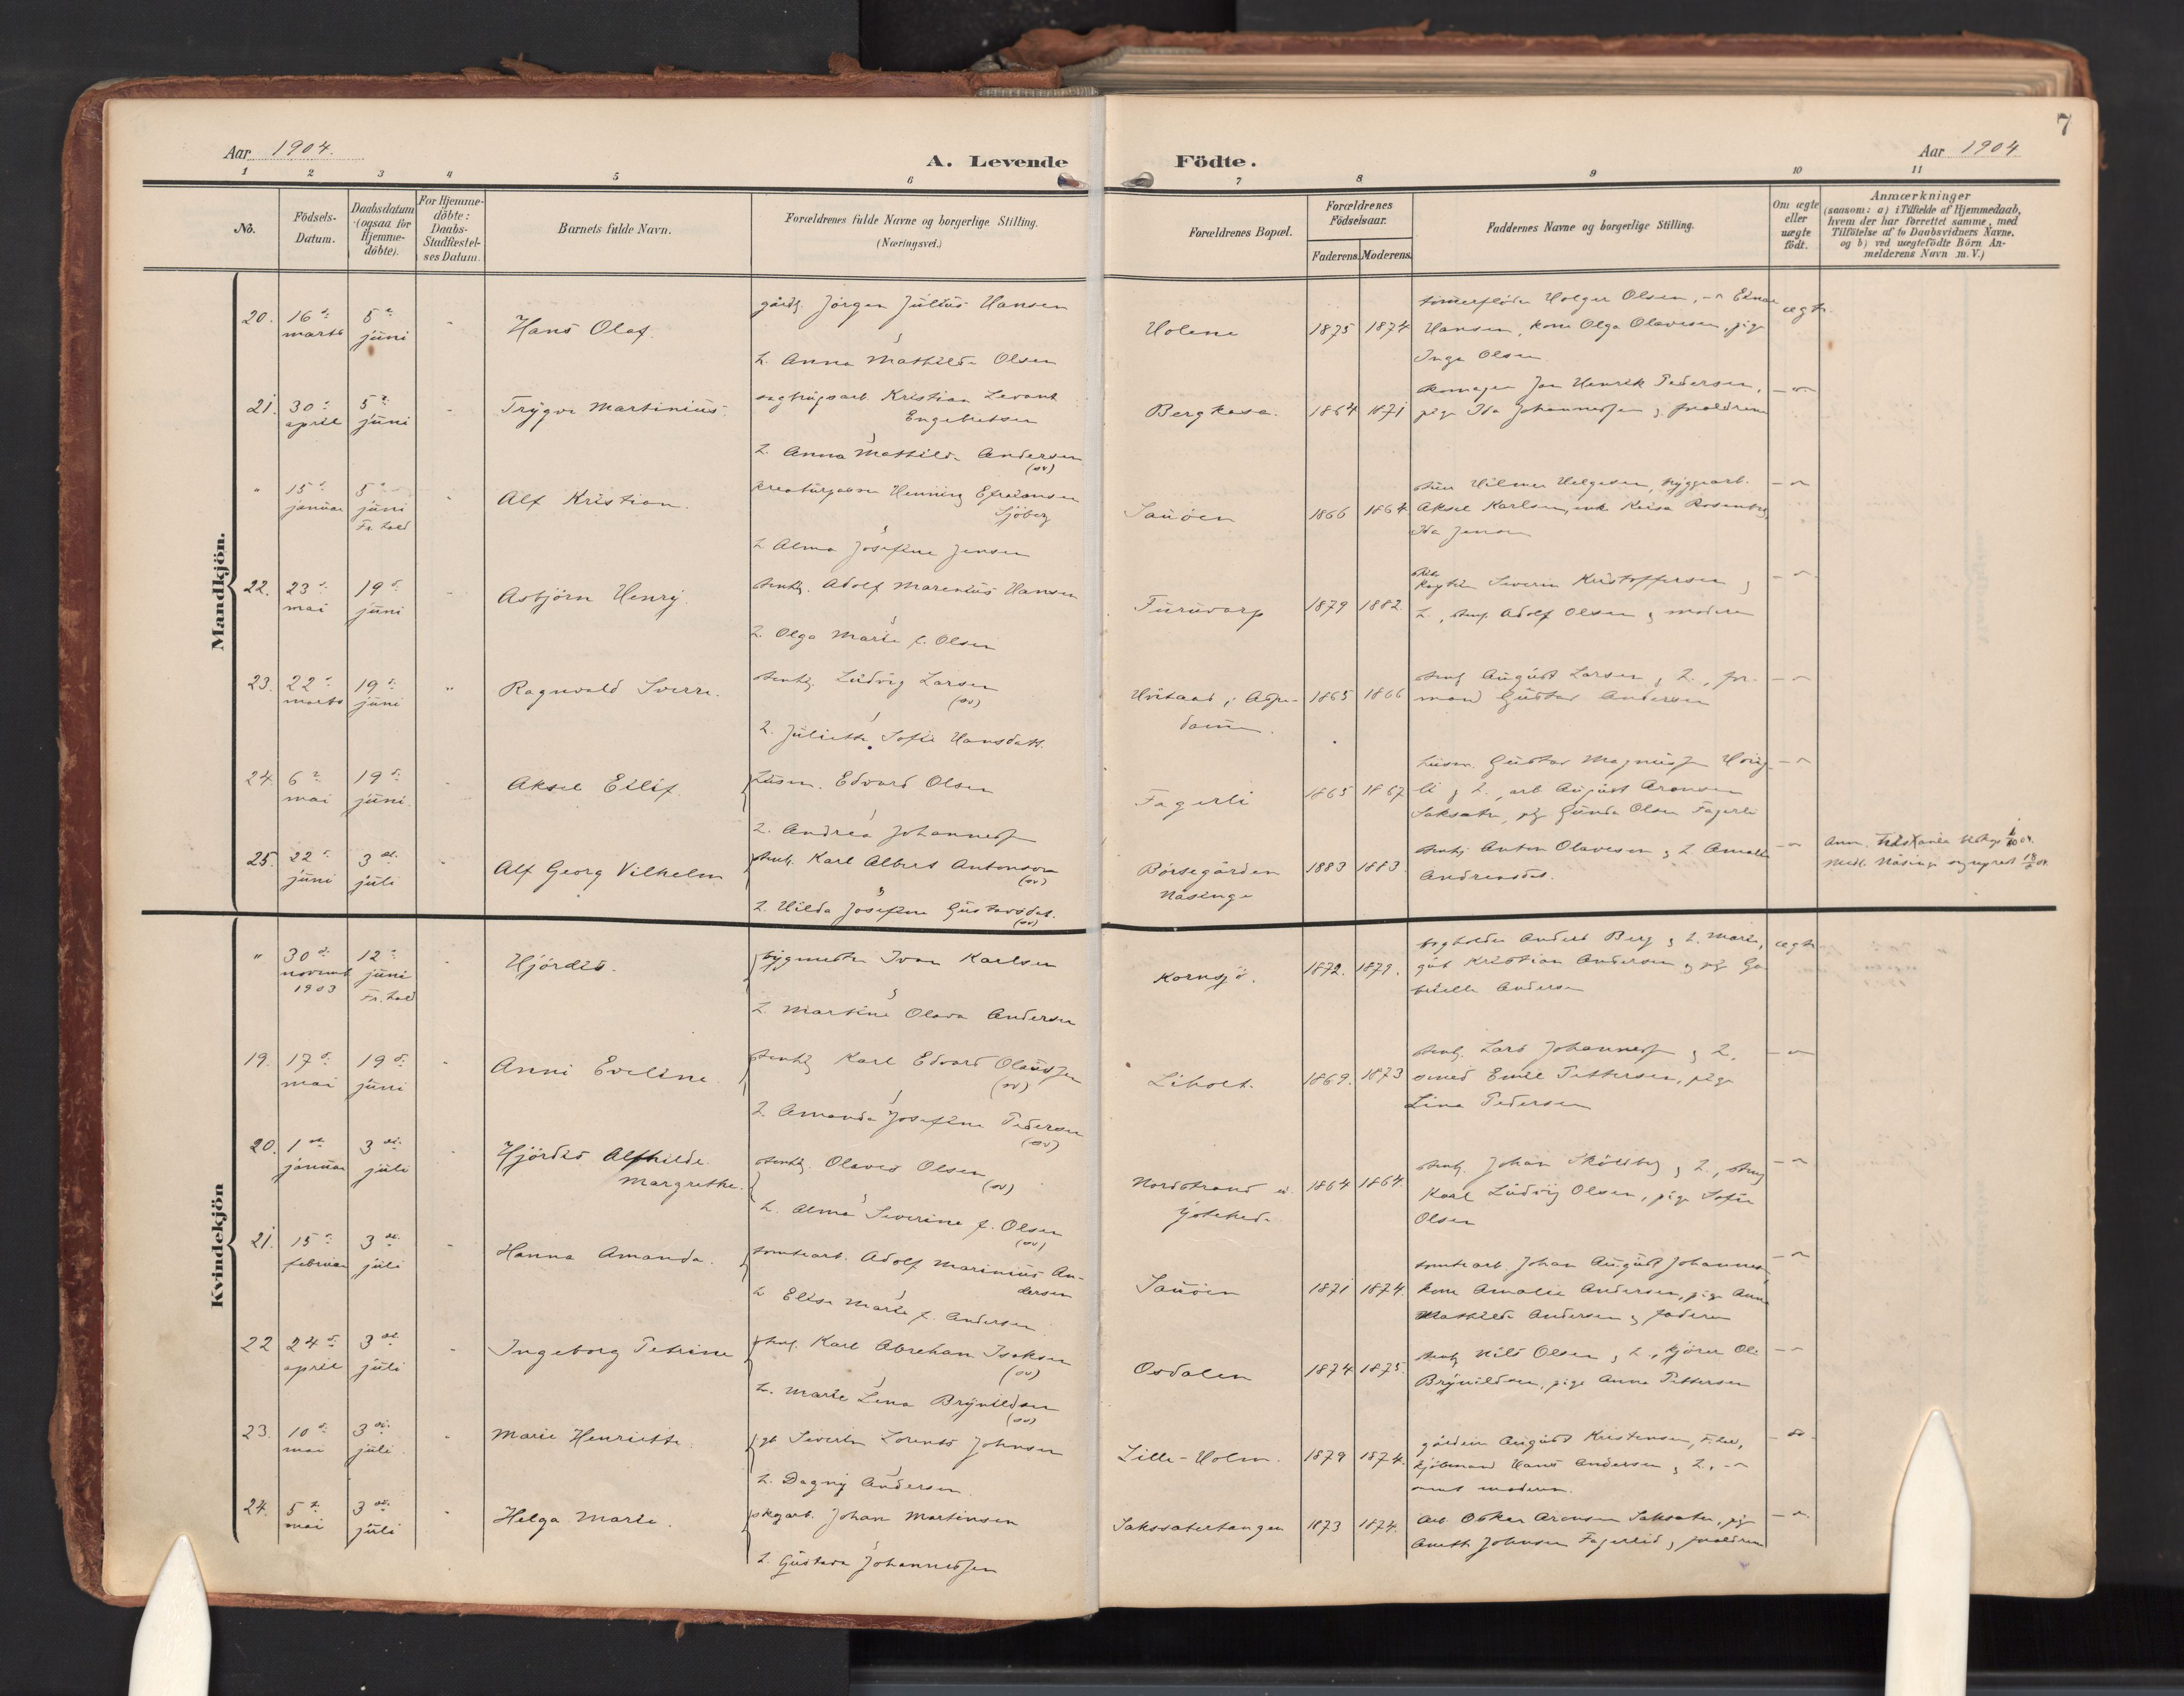 7
Aar 1904.
A. Levende Födte.
Aar 1904
1 2 3 4 5 6 7 8 9 10 11
No.
Födsels-
Datum.
Daabsdatum
(ogsaa for
Hjemme-
döbte).
For Hjemme-
döbte:
Daabs-
Stadfæstel-
ses Datum.
Barnets fulde Navn.
Forældrenes fulde Navne og borgerlige Stilling.
(Næringsvei.)
Forældrenes Bopæl.
Forældrenes
Födselsaar.
Faderens. Moderens.
Faddernes Navne og borgerlige Stilling.
Om ægte
eller
uægte
födt.
Anmærkninger
(saasom: a) i Tilfælde af Hjemmedaab,
hvem der har forrettet samme, med
Tilföielse af to Daabsvidners Navne,
og b) ved uægtefödte Börn An-
melderens Navn m. V.)
Mandkjön.
20. 16 marts 5 juni Hans Olaf.
gårdb. Jörgen Julius Hansen
&
h. Anna Mathilde Olsen
Holene 1875 1874
Holger Olsen, Einar
Hansen, kone Olga Olavesen, pige
Inga Olsen
ægte
21. 30 april 5 juni Trygve Martinius.
Kristian Levant
Engebretsen
&
h. Anna Mathilde Andersen
(sv)
Bergkasa. 1864 1871
skomager Jon Henrik Pedersen,
pige Ida Johannesen & forældrene
" 15 januar 5 juni
Fr. hald
Alf Kristian.
Henning Efraimsen
Sjöberg
&
h. Alma Josefine Jensen
Sauöen 1866 1864
Hilmer Helgesen, byggearb.
Aksel Karlsen, enke Kaisa Rosenberg,
Ida Jensen
22. 23 mai 19 juni Asbjörn Henry
stenh. Adolf Marenius Hansen
&
h. Olga Marie f. Olsen
Furuvarp 1879 1882.
Severin Kristoffersen &
h., stenh. Adolf Olsen & moderen
23. 22 marts 19 juni Ragnvald Sverre.
stenh. Ludvig Larsen
(sv)
&
h. Juliette Sofie Hansdatt.
Hvitaas, i Aspe-
damm. 1865 1866
stenh. August Larsen & h., for-
mand Gustav Andersen
24. 6 mai 19 juni. Aksel Eilif.
husm. Edvard Olsen
&
h. Andrea Johannes
Fagerli 1865 1867
husm. Gustav
li & h., arb August Aronsen
Saksater, pige Gunda Olsen Fagerli
25. 22 juni 3 juli Alf Georg Vilhelm
stenh. Karl Albert Antonson
(sv)
&
h. Hilda Josefine Gustavsdat.
(sv)
Börsegården
Näsinge 1883 1883.
stenh. Anton Olavesen & h Amalie
Andreasdat.
Kvindekjön
" 30 novemb 1903 12 juni
Fr. hald
Hjördis.
bygmester Ivar Karlsen
&
h. Martine Olava Andersen
Kornsjö. 1872. 1879.
bogholder Anders Berg & h. Marie,
gut Kristian Andersen & pige Ga-
brielle Andersen
ægte
19. 17 mai 19 juni Anni Eveline.
stenh. Karl Edvard Olaussen
(sv)
&
h. Amanda Josefine Pedersen
(sv)
Liholt. 1869. 1873
stenh. Lars Johannes & h.
smed Emil Pettersen, pige
Lina Pedersen
20. 1 januar 3 juli Hjördis Alfhilde
Margrethe.
stenh. Olaves Olsen
(sv)
&
h. Alma Severine f. Olsen
(sv)
Nordstrand 1864 1864.
stenh. Johan Sköllberg & h., stenh
Karl Ludvig Olsen, pige Sofie
Olsen
21. 15 februar 3 juli Hanna Amanda.
tomtearb. Adolf Marinius An-
dersen
&
h Elise Marie f. Andersen
Sauöen 1871 1874.
tomtearb. Johan August Johannes,
kone Amalie Andersen, pige Anna
Mathilde Andersen & faderen
22 24 april 3 juli Ingeborg Petrine
stenh. Karl Abrehan Isaksen
(sv)
&
h. Marie Lena Brynildsen
(sv)
Osdalen 1874 1875.
stenh Nils Olsen & h., kjörer Ole
Brynildsen, pige Anna Pettersen
23. 10 mai 3 juli Marie Henriette.
Severin Lorents Johnsen
&
h. Dagny Andersen.
Lille-Holm. 1879 1874.
August Kristensen,
Hans Andersen & h.,
samt moderen.
24. 5 mai 3 juli Helga Marie.
skogarb. Johan Martinsen
&
h. Gustava Johannessen
Sakssatertangen 1873 1874.
Arb. Oskar Aronsen Saksater, pige
Aneth Johnsen Fagerlid & forældrene